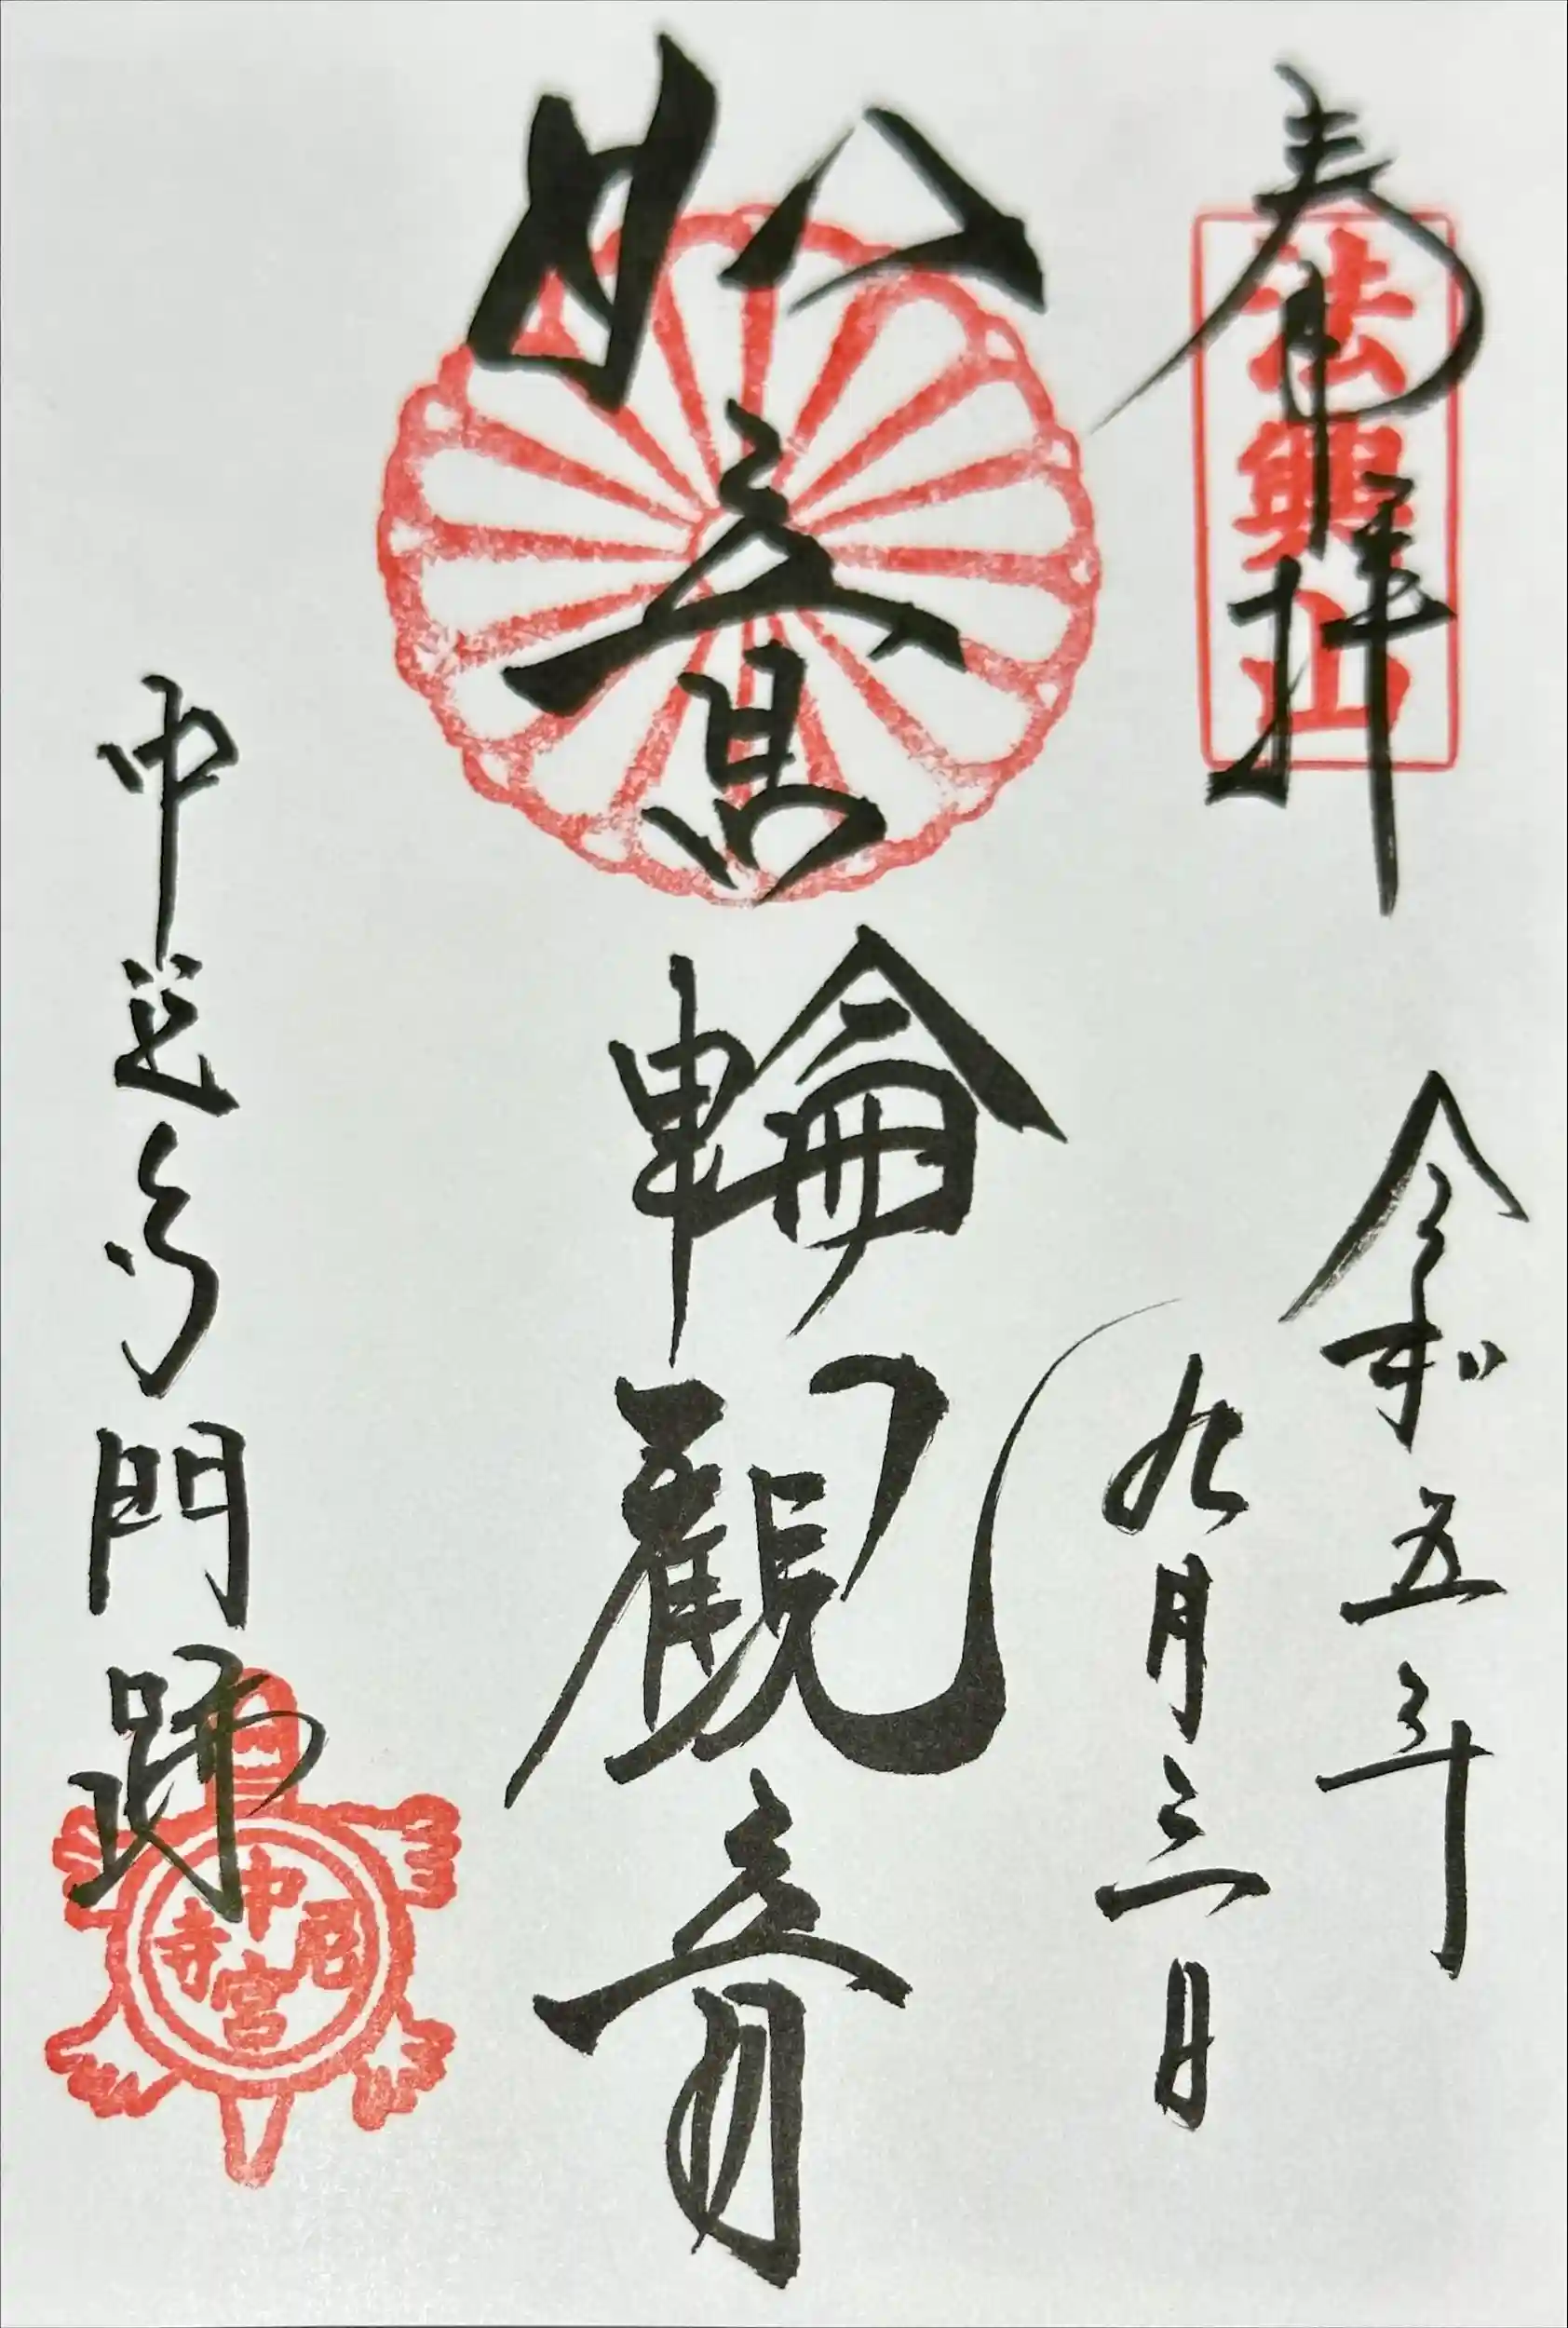 奉拝
法興山
令和五年
九月三日
如意輪観音
中宮寺門跡
中宮尼寺